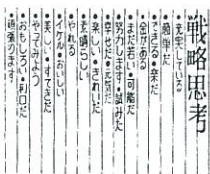 戦略思考
・充実している
・簡単だ
・できる・楽だ
・金がある
・まだ若い・可能だ
・努力します・試みた
・幸せだ・元気だ
・楽しい・きれいだ
・素晴らしい
・やれる
・イケル・おいしい
・美しい・すてきだ
・やってみよう
・おもしろい・利口だ
・頑張ります